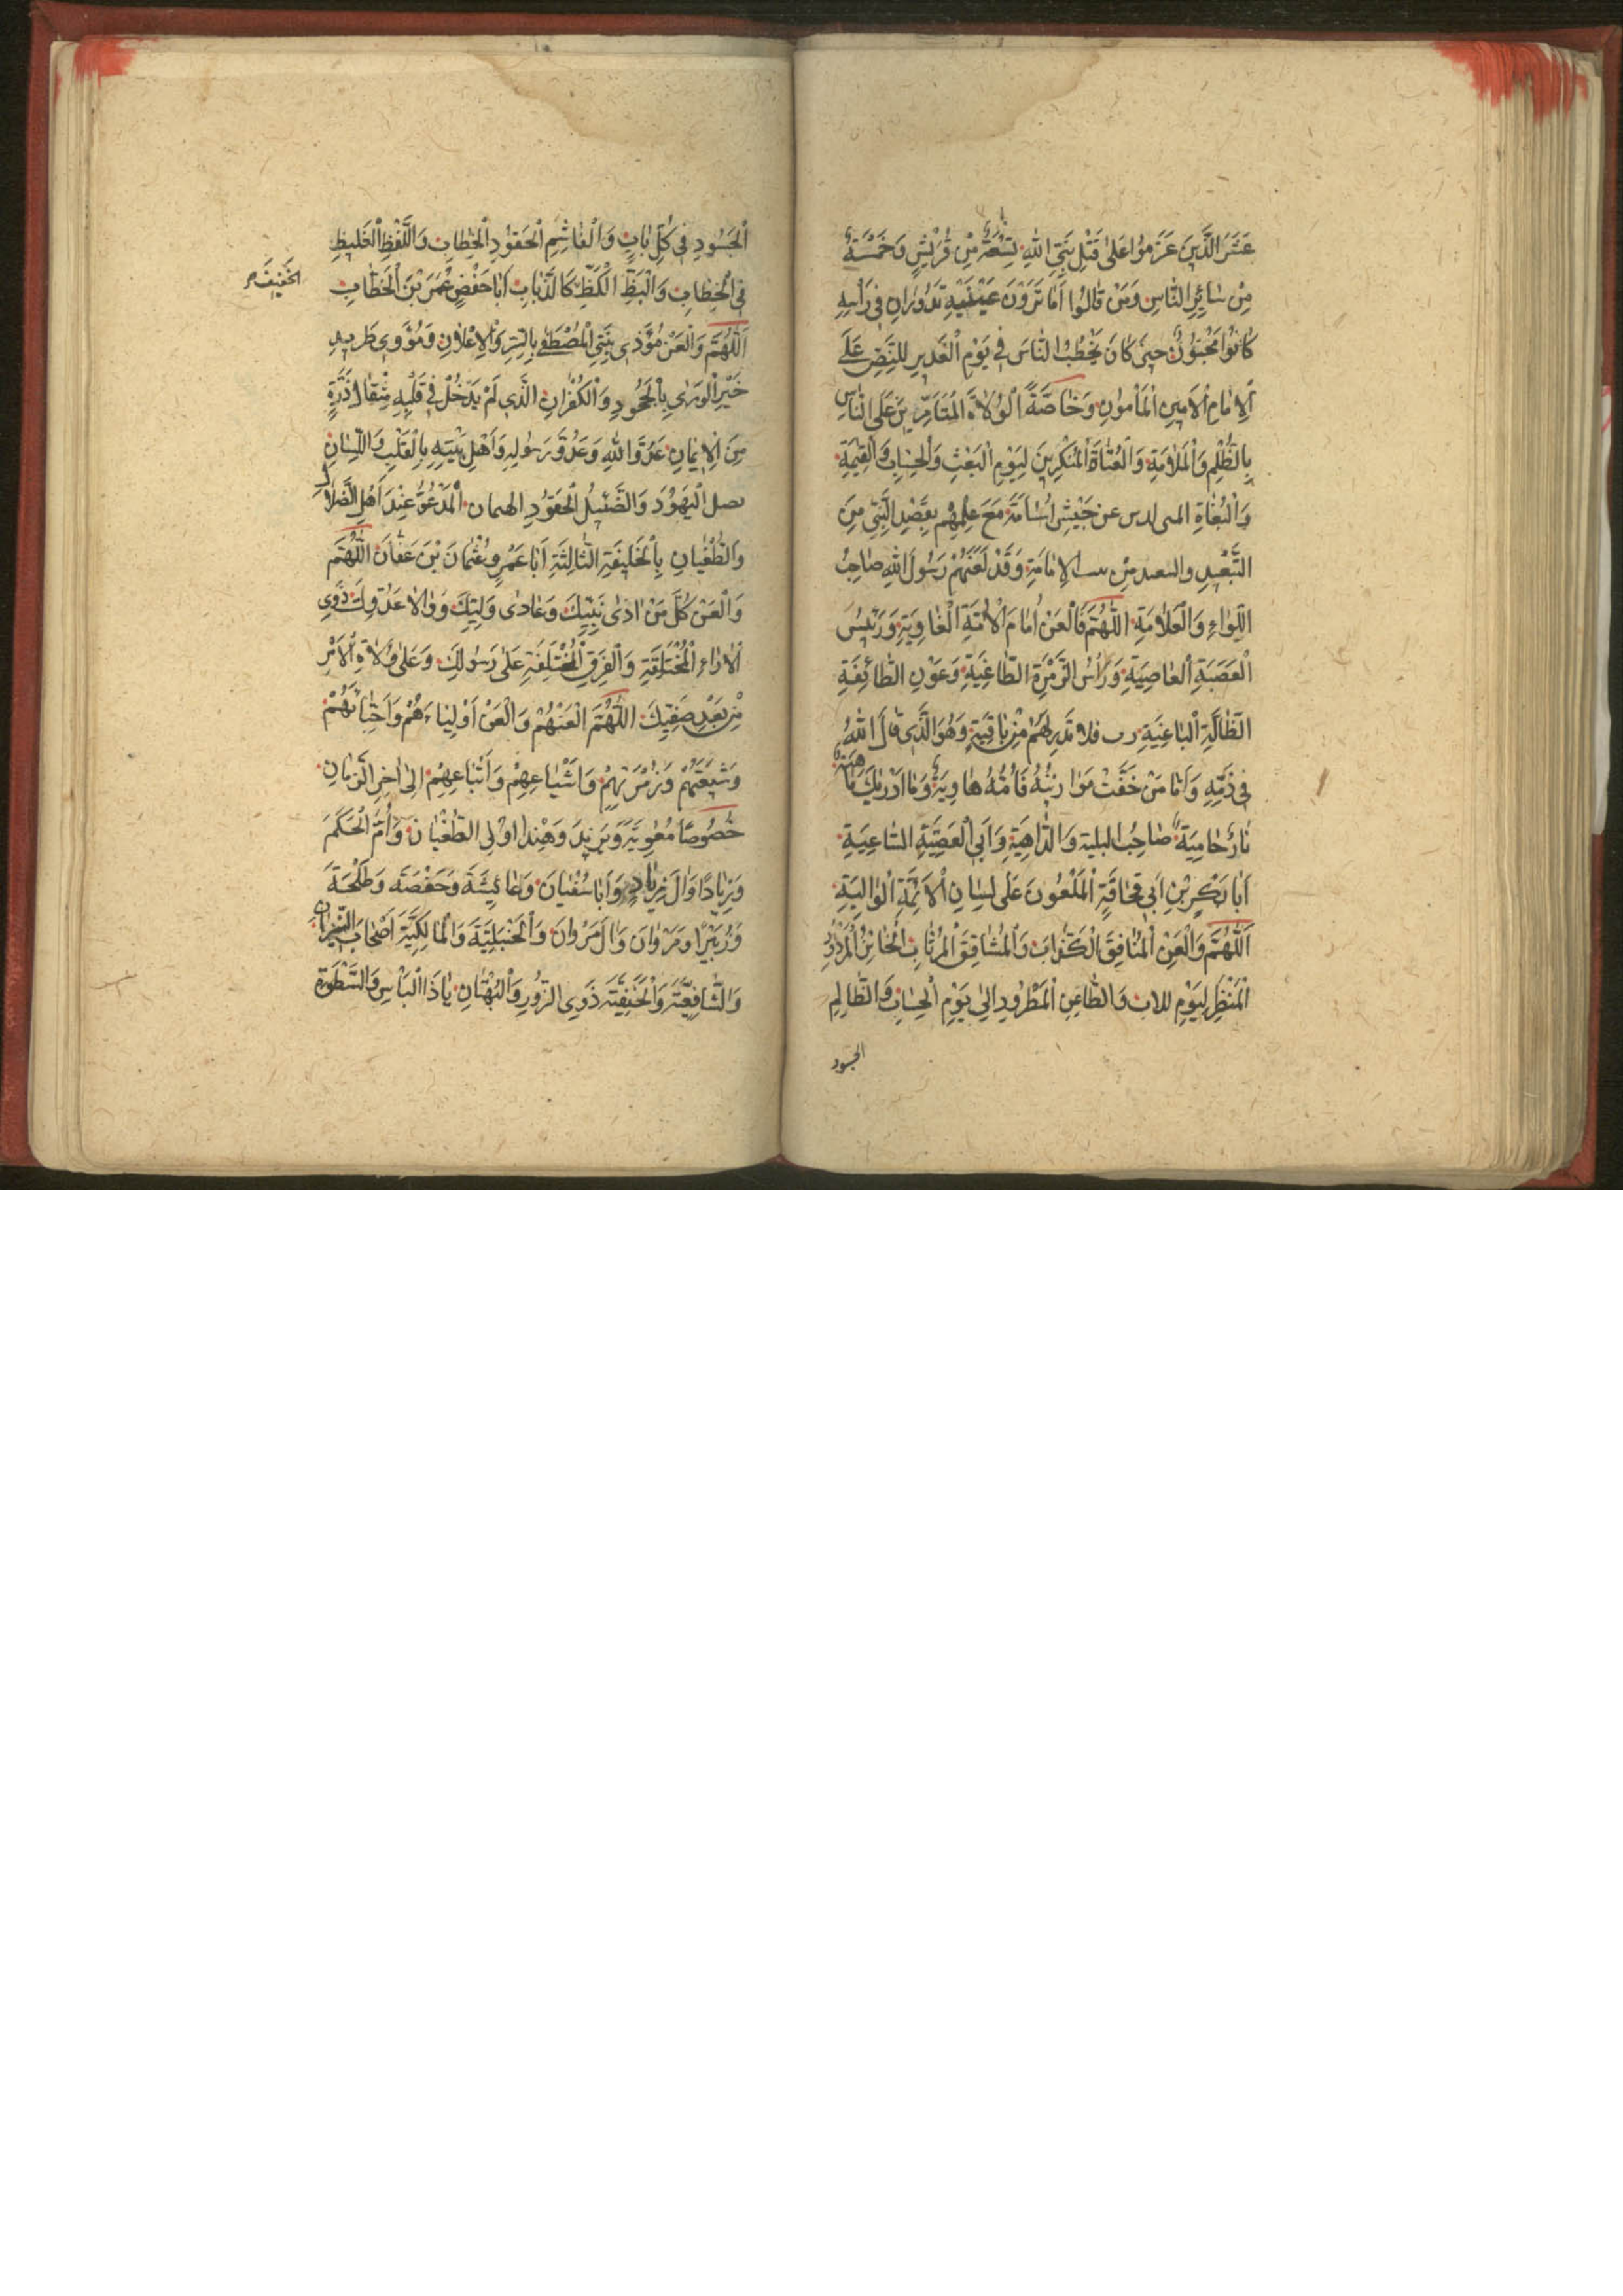 عَشَرَ الَّذِينَ عَزَمُوا عَلٰى قَتْلِ نَبِيِّ اللّٰهِ تِسْعَةٌ مِنْ قُرَيْشٍ وَخَمْسَةٌ
مِنْ سَائِرِ النَّاسِ وَمَنْ قَالُوا اَمَا تَرَوْنَ عَيْنَيْهِ تَدُورَانِ فِي رَأْسِهِ
كَانَّهُ مَجْنُونٌ حِينَ كَانَ يَخْطُبُ النَّاسَ فِي يَوْمِ الْغَدِيرِ لِلنَّصِّ عَلَى
الْاِمَامِ الْاَمِينِ الْمَأْمُونِ وَخَاصَّةً الْوُلَاةَ الْمُتَاَمِّرِينَ عَلَى النَّاسِ
بِالظُّلْمِ وَالْمَلَامَةِ وَالْعُتَاةَ الْمُنْكِرِينَ لِيَوْمِ الْبَعْثِ وَالْحِسَابِ وَالْقِيٰمَةِ
وَالْبُغَاةِ عن جَيْشِ اُسَامَةَ مَعَ عِلْمِهِمْ بِقَصْدِ النَّبِيِّ مِنَ
التَّبْعِيدِ مِنْ الْاِمَامَةِ وَقَدْ لَعَنَهُمْ رَسُولُ اللّٰهِ صَاحِبُ
اللِّوَاءِ وَالْعَلَامَةِ اَللّٰهُمَّ فَالْعَنْ اِمَامَ الْاُمَّةِ الْغَاوِيَةِ وَرَئِيسَ
الْعَصَبَةِ الْعَاصِيَةِ وَرَأْسَ الزُّمْرَةِ الطَّاغِيَةِ وَعَوْنِ الطَّائِفَةِ
الضَّالَّةِ الْبَاغِيَةِ رب فلا تَذَرْ لَهُمْ مِنْ بَاقِيَةٍ وَهُوَ الَّذِي قَالَ اللّٰهُ
فِي ذَمِّهِ وَاَمَّا مَنْ خَفَّتْ مَوَازِينُهُ فَاُمُّهُ هَاوِيَةٌ وَمَا اَدْرٰيكَ مَاهِيَهْ
نَارٌ حَامِيَةٌ صَاحِبُ البلية وَالدَّاهِيَةِ وَاَبِي الْعَصَبَةِ السَّاعِيَةِ
اَبَا بَكْرِ بْنِ اَبِي قُحَافَةَ الْمَلْعُونَ عَلٰى لِسَانِ الْاَئِمَّةِ
اَللّٰهُمَّ وَالْعَنِ الْمُنَافِقَ الْكَذَّابَ وَالْمُشَاقِقَ الْمُرْتَابَ الْخَائِنُ
الْمُنْظَرِ لِيَوْمِ وَالطَّاعِنِ الْمَطْرُودِ اِلٰى يَوْمِ الْحِسَابِ وَالظَّالِمِ
الحسود
الْحَسُودِ فِي كُلِّ بَابٍ وَالْغَاشِمِ الْحَقُودِ الْخِطَابِ وَاللَّفْظِ الْغَلِيظِ
الْخَفِيفَةِ
فِي الْخِطَابِ وَالْبَظِّ الْكَظِّ كَالذُّبَابِ اَبَا حَفْصٍ عُمَرَ بْنَ الْخَطَّابِ
اَللّٰهُمَّ وَالْعَنْ مُؤْذِي نَبِيِّ الْمُصْطَفٰى بِالسِّرِّ وَالْاِعْلَانِ وَمُؤْوِي طَرِيدِ
خَيْرِ الْوَرٰى بِالْجُحُودِ وَالْكُفْرَانِ الَّذِي لَمْ يَدْخُلْ فِي قَلْبِهِ مِثْقَالُ ذَرَّةٍ
مِنَ الْاِيمَانِ عَدُوَّ اللّٰهِ وَعَدُوَّ رَسُولِهِ وَاَهْلِ بَيْتِهِ بِالْقَلْبِ وَاللِّسَانِ
الْيَهُودَ وَالضَّئِيلُ الْحَقُودِ الْمَدْعُوِّ عِنْدَ اَهْلِ الضَّلَالِ
وَالطُّغْيَانِ بِالْخَلِيفَةِ الثَّالِثَةِ اَبَا عَمْرٍو عُثْمَانَ بْنَ عَفَّانَ اَللّٰهُمَّ
وَالْعَنْ كُلَّ مَنْ اٰذٰى نَبِيَّكَ وَعَادٰى وَلِيَّكَ وَوَالَا عَدُوَّكَ ذَوِي
الْاٰرَاءِ الْمُخْتَلِقَةِ وَالْفِرَقِ الْمُخْتَلِفَةِ عَلٰى رَسُولِكَ وَعَلٰى وُلَاةِ الْاَمْرِ
مِنْ بَعْدِ صَفِيِّكَ اَللّٰهُمَّ الْعَنْهُمْ وَالْعَنْ اَوْلِيَاءَهُمْ وَاَحِبَّائَهُمْ
وَشِيعَتَهُمْ وَزُمْرَتَهُمْ وَاَشْيَاعِهِمْ وَاَتْبَاعِهِمْ اِلٰى اٰخِرِ الزَّمَانِ
خُصُوصًا مُعٰوِيَةَ وَيَزِيدَ وَهِنْدًا اُولِي الطُّغْيَانِ وَاُمَّ الْحَكَمَ
وَزِيَادًا وَاٰلَ زِيَادٍ وَاَبَا سُفْيَانَ وَعَائِشَةَ وَحَفْصَةَ وَطَلْحَةَ
وَزُبَيْرًا وَمَرْوَانَ وَاٰلَ مَرْوَانَ وَالْحَنْبَلِيَّةَ وَالْمَالِكِيَّةَ اَصْحَابَ النِّيرَانِ
وَالشَّافِعِيَّةَ وَالْحَنَفِيَّةَ ذَوِي الزُّورِ وَالْبُهْتَانِ يَا ذَا الْبَأْسِ وَالسَّطْوَةِ